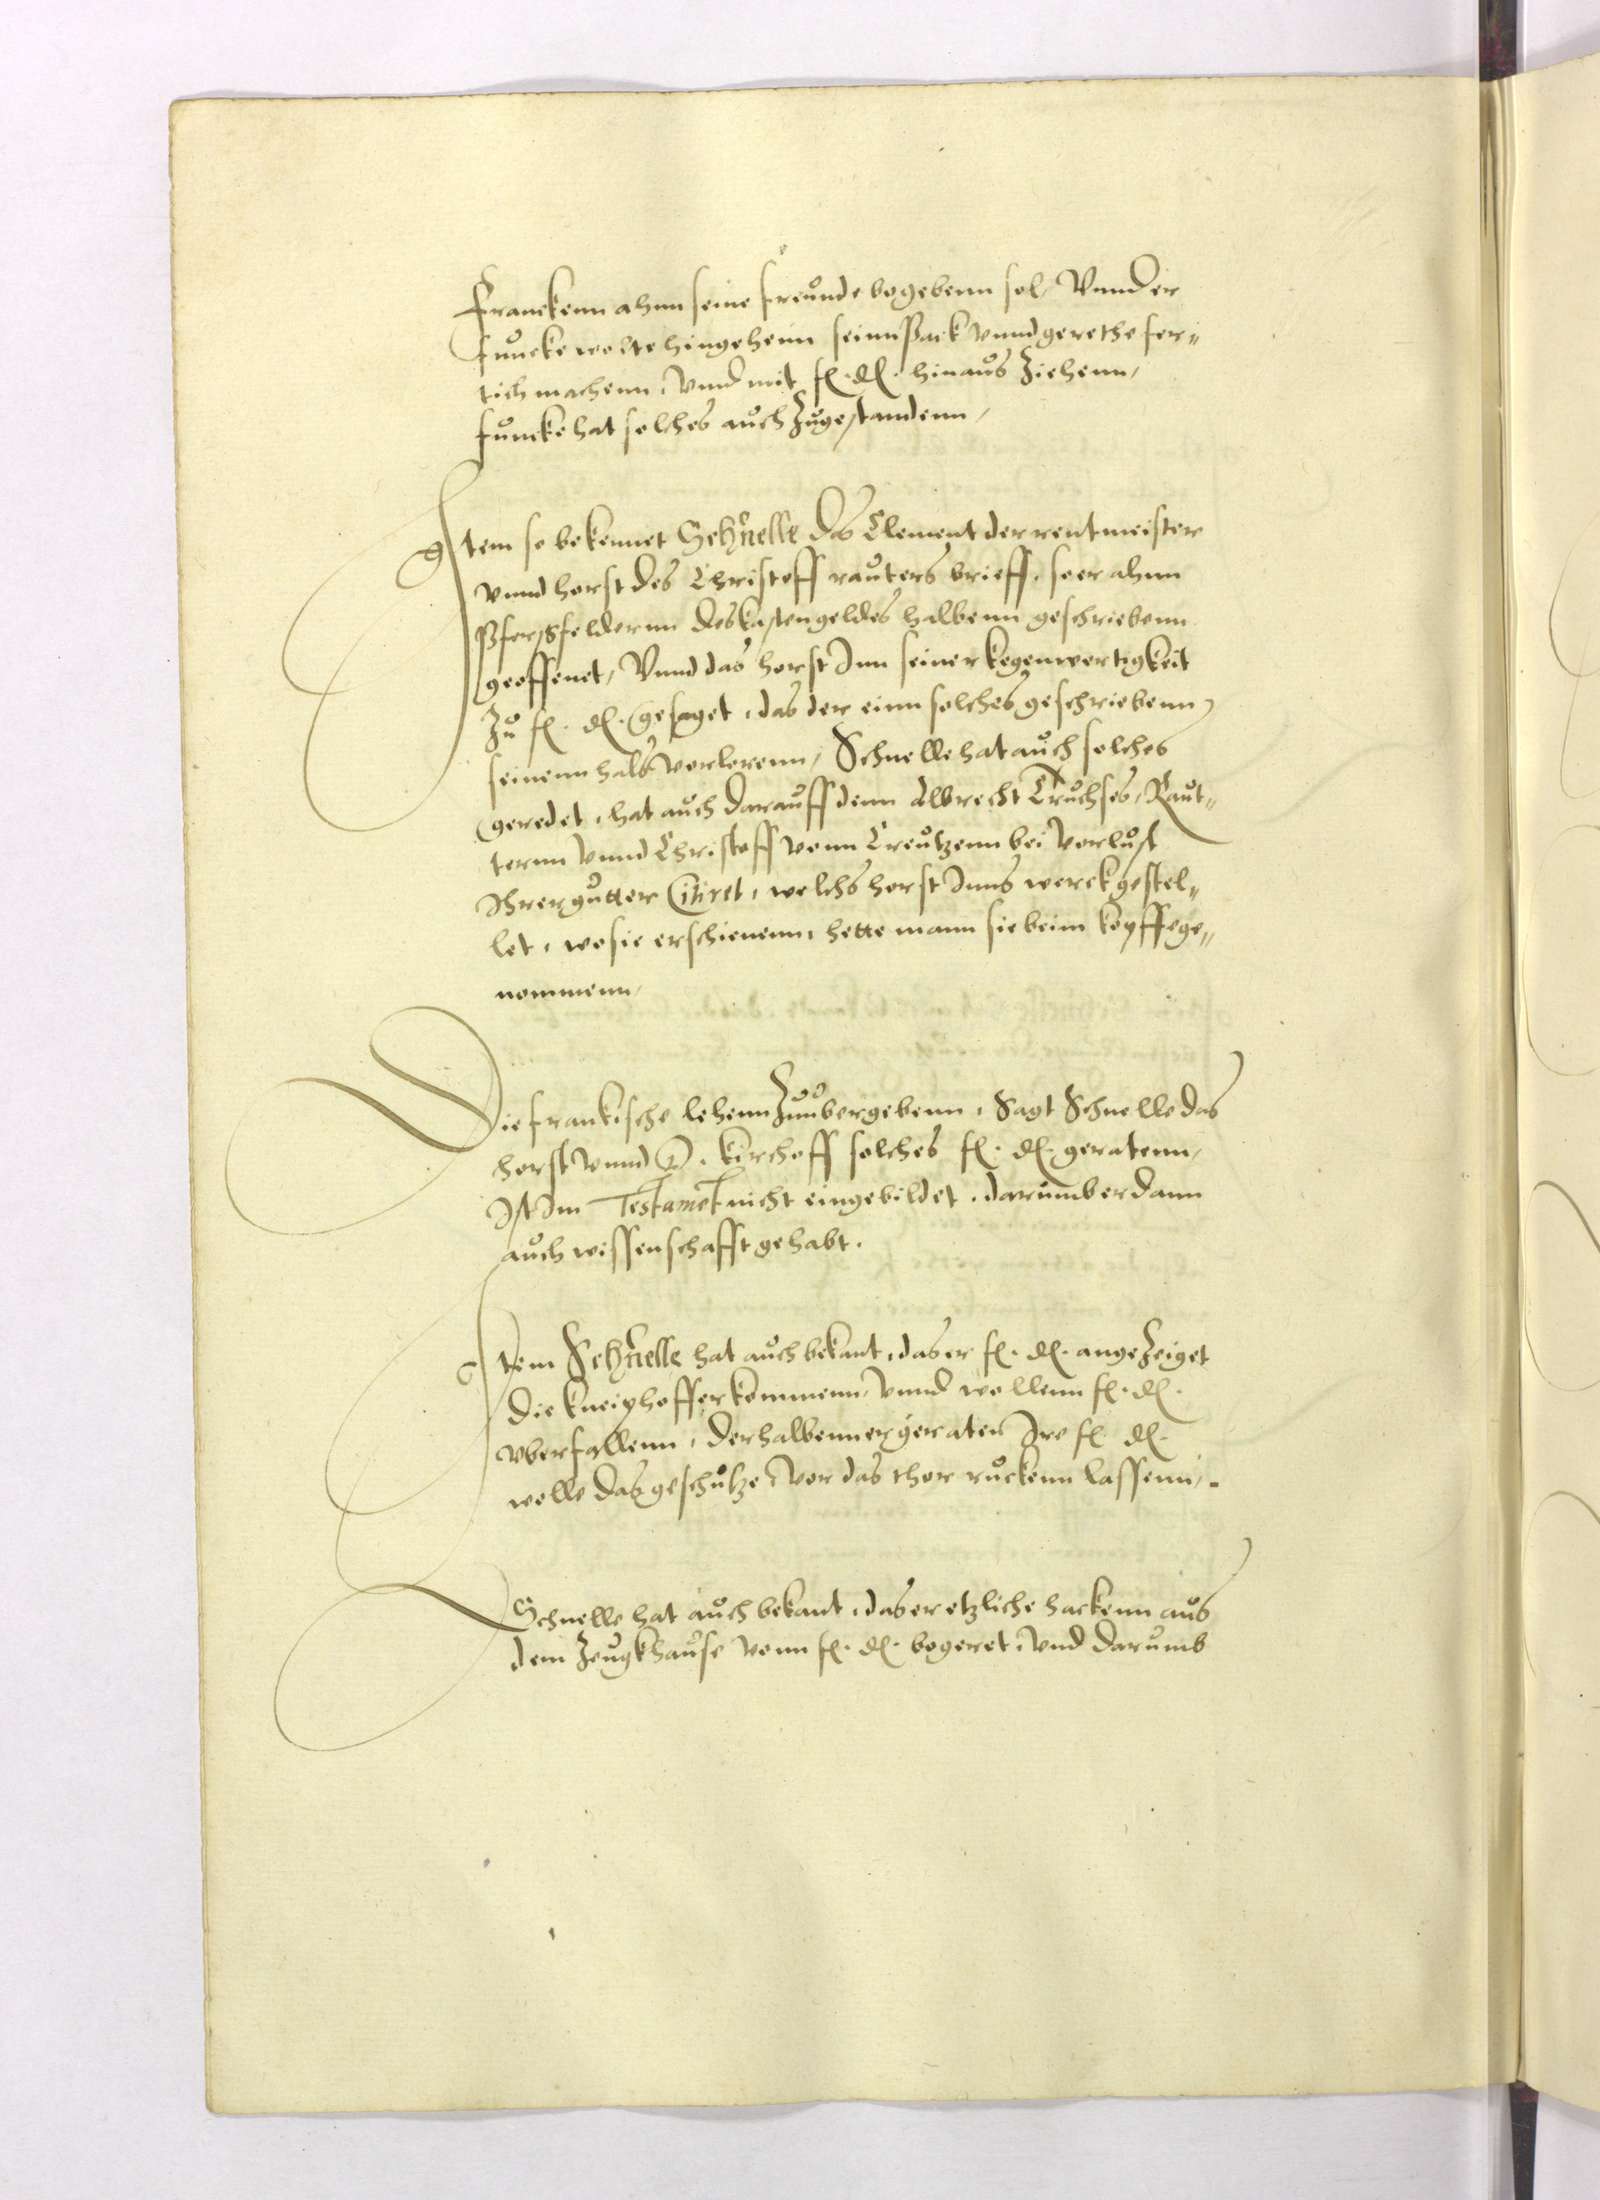 Franckenn ahnn seine freunde begebenn sol, Vnnd er
Funcke wolte hingehenn seinn Pack vnnd gerethe fer„
tich machenn, Vnnd mit f. d. hinaus Ziehenn,
Funcke hat solches auch Zugestandenn,
Item so bekennet Schnelle das Clement der rentmeister
vnnd Horst des Christoff rauters brieff, so er ahnn
Pfersfeldernn des kastengeldes halbenn geschriebenn
geoffenet, Vnnd das Horst Inn seiner kegenwertigkeit
Zu f. d. gesaget, das der einn solches geschriebenn
seinenn hals verlorenn, Schnelle hat auch solches
geredet, hat auch darauff denn Albrecht Truchses, Raut„
ternn Vnnd Christoff vonn Creutzenn bei Verlust
Ihrer gutter Citiret, welchs Horst Inns werck gestel„
let, wo sie erschienenn, hette mann sie beim kopffe ge„
nommenn,
Die frankische lehenn Zuubergebenn, Sagt Schnelle das
Horst vnnd D. Kirchoff solches f. d. geratenn,
Ist Im Testamet nicht eingebildet, darumb er dann
auch wissenschafft gehabt.
Item Schnelle hat auch bekant, das er f. d. angeZeiget
die Kneiphoffer kommenn, Vnnd wollenn f. d.
vberfallenn, derhalbenn er geraten Ire f. d.
wolle das geschutze vor das thor ruckenn lassenn,
Schnelle hat auch bekant, das er etzliche hackenn aus
dem Zeugkhause vonn f. d. begeret, Vnd darumb